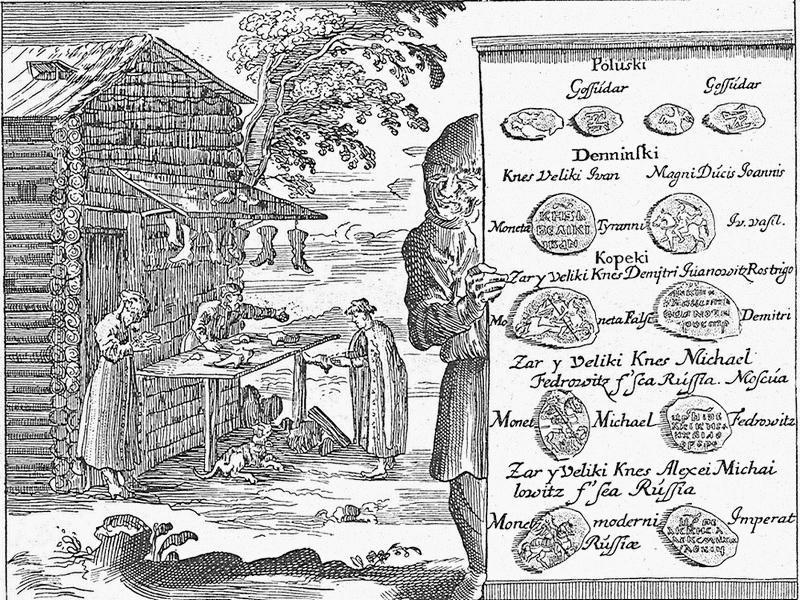 Poluski
Gossúdar Gossúdar
Denninski
Knes Veliki Ivan Magni Dúcis Ioannis
Moneta Tyranni Iv. vasl.
КНѦЗЬ
ВЕЛІКІ
ІВАН
Kopeki
Zar y Veliki Knes Demitri Iuanowitz Rostrigo
Mo neta Falsc Demitri
Zar y Veliki Knes Michael
Fedrowitz f'sea Rússia. Moscúa
Monet Michael Fedrowitz
Zar y Veliki Knes Alexei Michai
lowitz f'sea Rússia
Monet moderni Imperat
Rússiæ